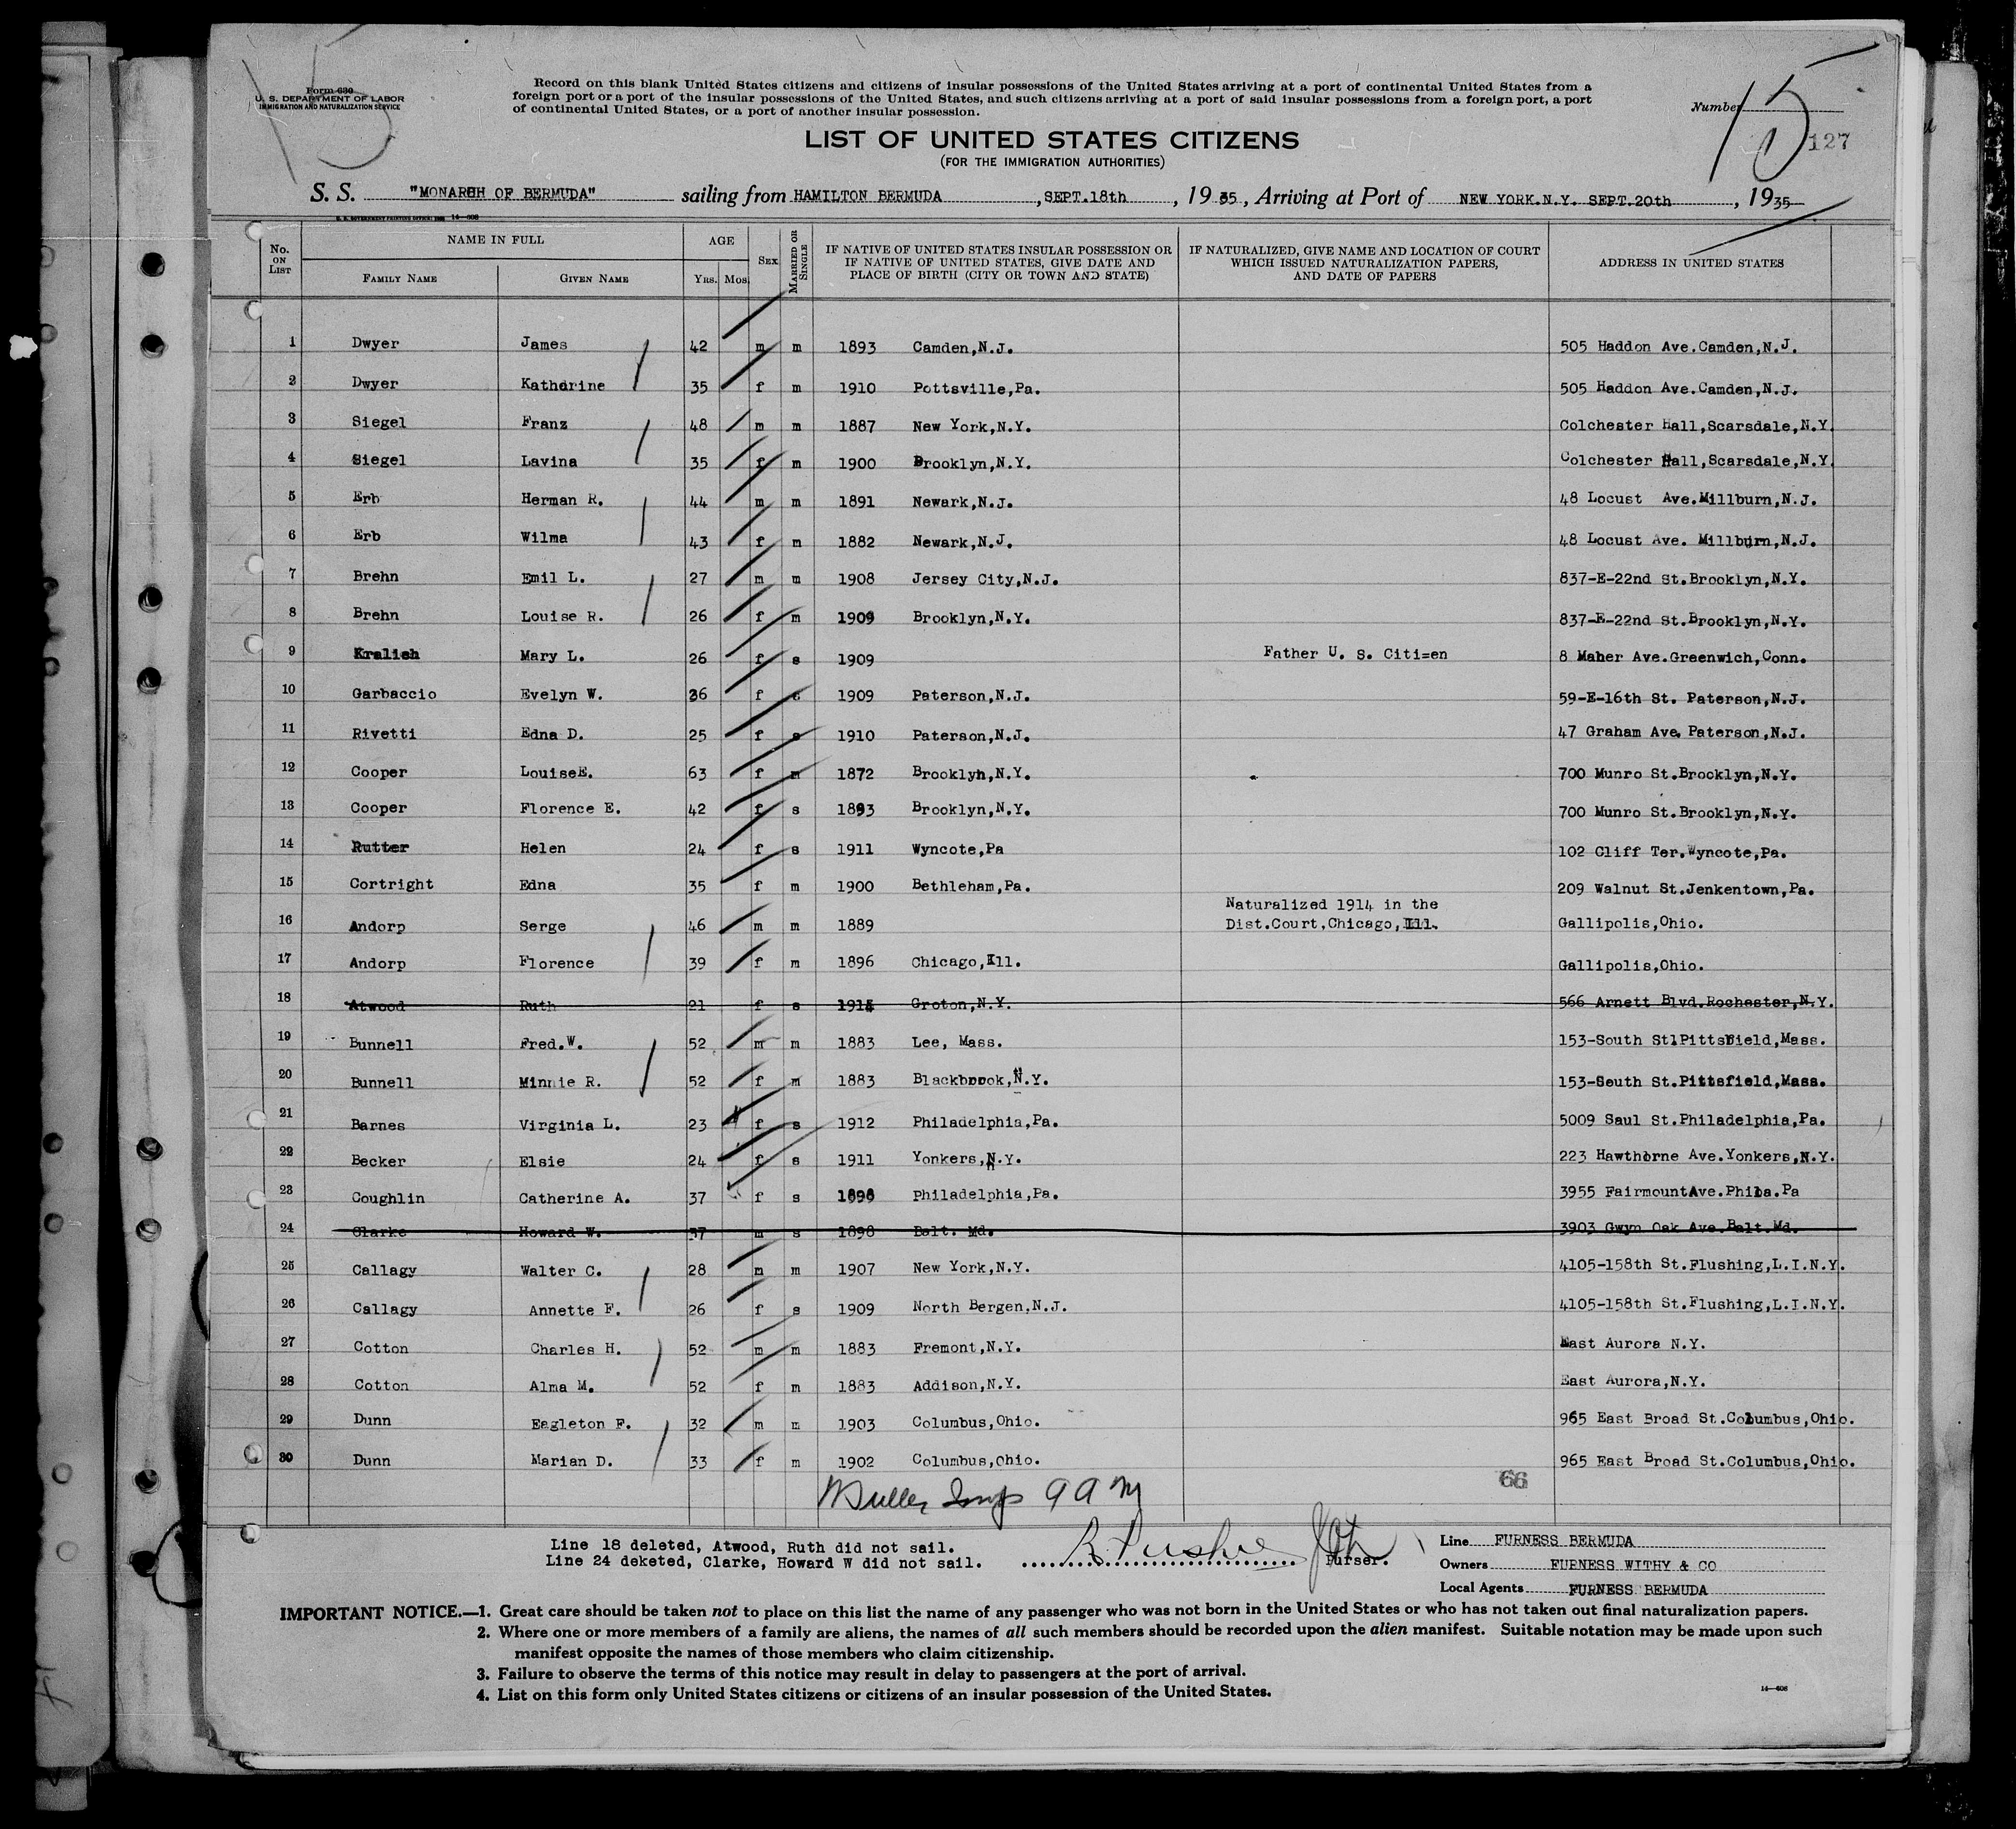 Form 630
U. S. DEPARTMENT OF LABOR
IMMIGRATION AND NATURALIZATION SERVICE
Record on this blank United States citizens and citizens of insular possessions of the United States arriving at a port of continental United States from a
foreign port or a port of the insular possessions of the United States, and such citizens arriving at a port of said insular possessions from a foreign port, a port
of continental United States, or a port of another insular possession.
Number 15
127
LIST OF UNITED STATES CITIZENS
(FOR THE IMMIGRATION AUTHORITIES)
S. S. "MONARCH OF BERMUDA" sailing from HAMILTON BERMUDA ,SEPT.18th , 19 35 , Arriving at Port of NEW YORK.N.Y. SEPT.20th , 1935
No. ON LIST NAME IN FULL AGE SEX MARRIED OR SINGLE IF NATIVE OF UNITED STATES INSULAR POSSESSION OR IF NATIVE OF UNITED STATES, GIVE DATE AND PLACE OF BIRTH (CITY OR TOWN AND STATE) IF NATURALIZED, GIVE NAME AND LOCATION OF COURT WHICH ISSUED NATURALIZATION PAPERS, AND DATE OF PAPERS ADDRESS IN UNITED STATES
FAMILY NAME GIVEN NAME YRS. MOS.
1 Dwyer James 42 m m 1893 Camden,N.J. 505 Haddon Ave.Camden,N.J.
2 Dwyer Katherine 35 f m 1910 Pottsville,Pa. 505 Haddon Ave.Camden,N.J.
3 Siegel Franz 48 m m 1887 New York,N.Y. Colchester Hall,Scarsdale,N.Y.
4 Siegel Lavina 35 f m 1900 Brooklyn,N.Y. Colchester Hall,Scarsdale,N.Y.
5 Erb Herman R. 44 m m 1891 Newark,N.J. 48 Locust Ave.Millburn,N.J.
6 Erb Wilma 43 f m 1882 Newark,N.J. 48 Locust Ave. Millburn,N.J.
7 Brehn Emil L. 27 m m 1908 Jersey City,N.J. 837-E-22nd St.Brooklyn,N.Y.
8 Brehn Louise R. 26 f m 1909 Brooklyn,N.Y. 837-E-22nd St.Brooklyn,N.Y.
9 Kralich Mary L. 26 f s 1909 Father U. S. Citi=en 8 Maher Ave.Greenwich,Conn.
10 Garbaccio Evelyn W. 26 f s 1909 Paterson,N.J. 59-E-16th St. Paterson,N.J.
11 Rivetti Edna D. 25 f s 1910 Paterson,N.J. 47 Graham Ave. Paterson,N.J.
12 Cooper LouiseE. 63 f m 1872 Brooklyn,N.Y. 700 Munro St.Brooklyn,N.Y.
13 Cooper Florence E. 42 f s 1893 Brooklyn,N.Y. 700 Munro St.Brooklyn,N.Y.
14 Rutter Helen 24 f s 1911 Wyncote,Pa 102 Cliff Ter.Wyncote,Pa.
15 Cortright Edna 35 f m 1900 Bethleham,Pa. 209 Walnut St.Jenkentown,Pa.
Naturalized 1914 in the
16 Andorp Serge 46 m m 1889 Dist.Court,Chicago,Ill. Gallipolis,Ohio.
17 Andorp Florence 39 f m 1896 Chicago,Ill. Gallipolis,Ohio.
18 Atwood Ruth 21 f s 1914 Groton,N.Y. 566 Arnett Blvd.Rochester,N.Y.
19 Bunnell Fred.W. 52 m m 1883 Lee, Mass. 153-South St.Pittsfield,Mass.
20 Bunnell Minnie R. 52 f m 1883 Blackbrook,N.Y. 153-South St.Pittsfield,Mass.
21 Barnes Virginia L. 23 f s 1912 Philadelphia,Pa. 5009 Saul St.Philadelphia,Pa.
22 Becker Elsie 24 f s 1911 Yonkers,N.Y. 223 Hawthorne Ave.Yonkers,N.Y.
23 Coughlin Catherine A. 37 f s 1898 Philadelphia,Pa. 3955 FairmountAve.Phila.Pa
24 Clarke Howard W. 37 m s 1898 Balt. Md. 3903 Gwyn Oak Ave.Balt.Md.
25 Callagy Walter C. 28 m m 1907 New York,N.Y. 4105-158th St.Flushing,L.I.N.Y.
26 Callagy Annette F. 26 f s 1909 North Bergen,N.J. 4105-158th St.Flushing,L.I.N.Y.
27 Cotton Charles H. 52 m m 1883 Fremont,N.Y. East Aurora N.Y.
28 Cotton Alma M. 52 f m 1883 Addison,N.Y. East Aurora,N.Y.
29 Dunn Eagleton F. 32 m m 1903 Columbus,Ohio. 965 East Broad St.Columbus,Ohio.
30 Dunn Marian D. 33 f m 1902 Columbus,Ohio. 965 East Broad St.Columbus,Ohio.
66
Line 18 deleted, Atwood, Ruth did not sail.
Line 24 deketed, Clarke, Howard W did not sail.
Purser.
Line FURNESS BERMUDA
Owners FURNESS WITHY & CO
Local Agents FURNESS BERMUDA
IMPORTANT NOTICE.—1. Great care should be taken not to place on this list the name of any passenger who was not born in the United States or who has not taken out final naturalization papers.
2. Where one or more members of a family are aliens, the names of all such members should be recorded upon the alien manifest. Suitable notation may be made upon such
manifest opposite the names of those members who claim citizenship.
3. Failure to observe the terms of this notice may result in delay to passengers at the port of arrival.
4. List on this form only United States citizens or citizens of an insular possession of the United States.
14—608